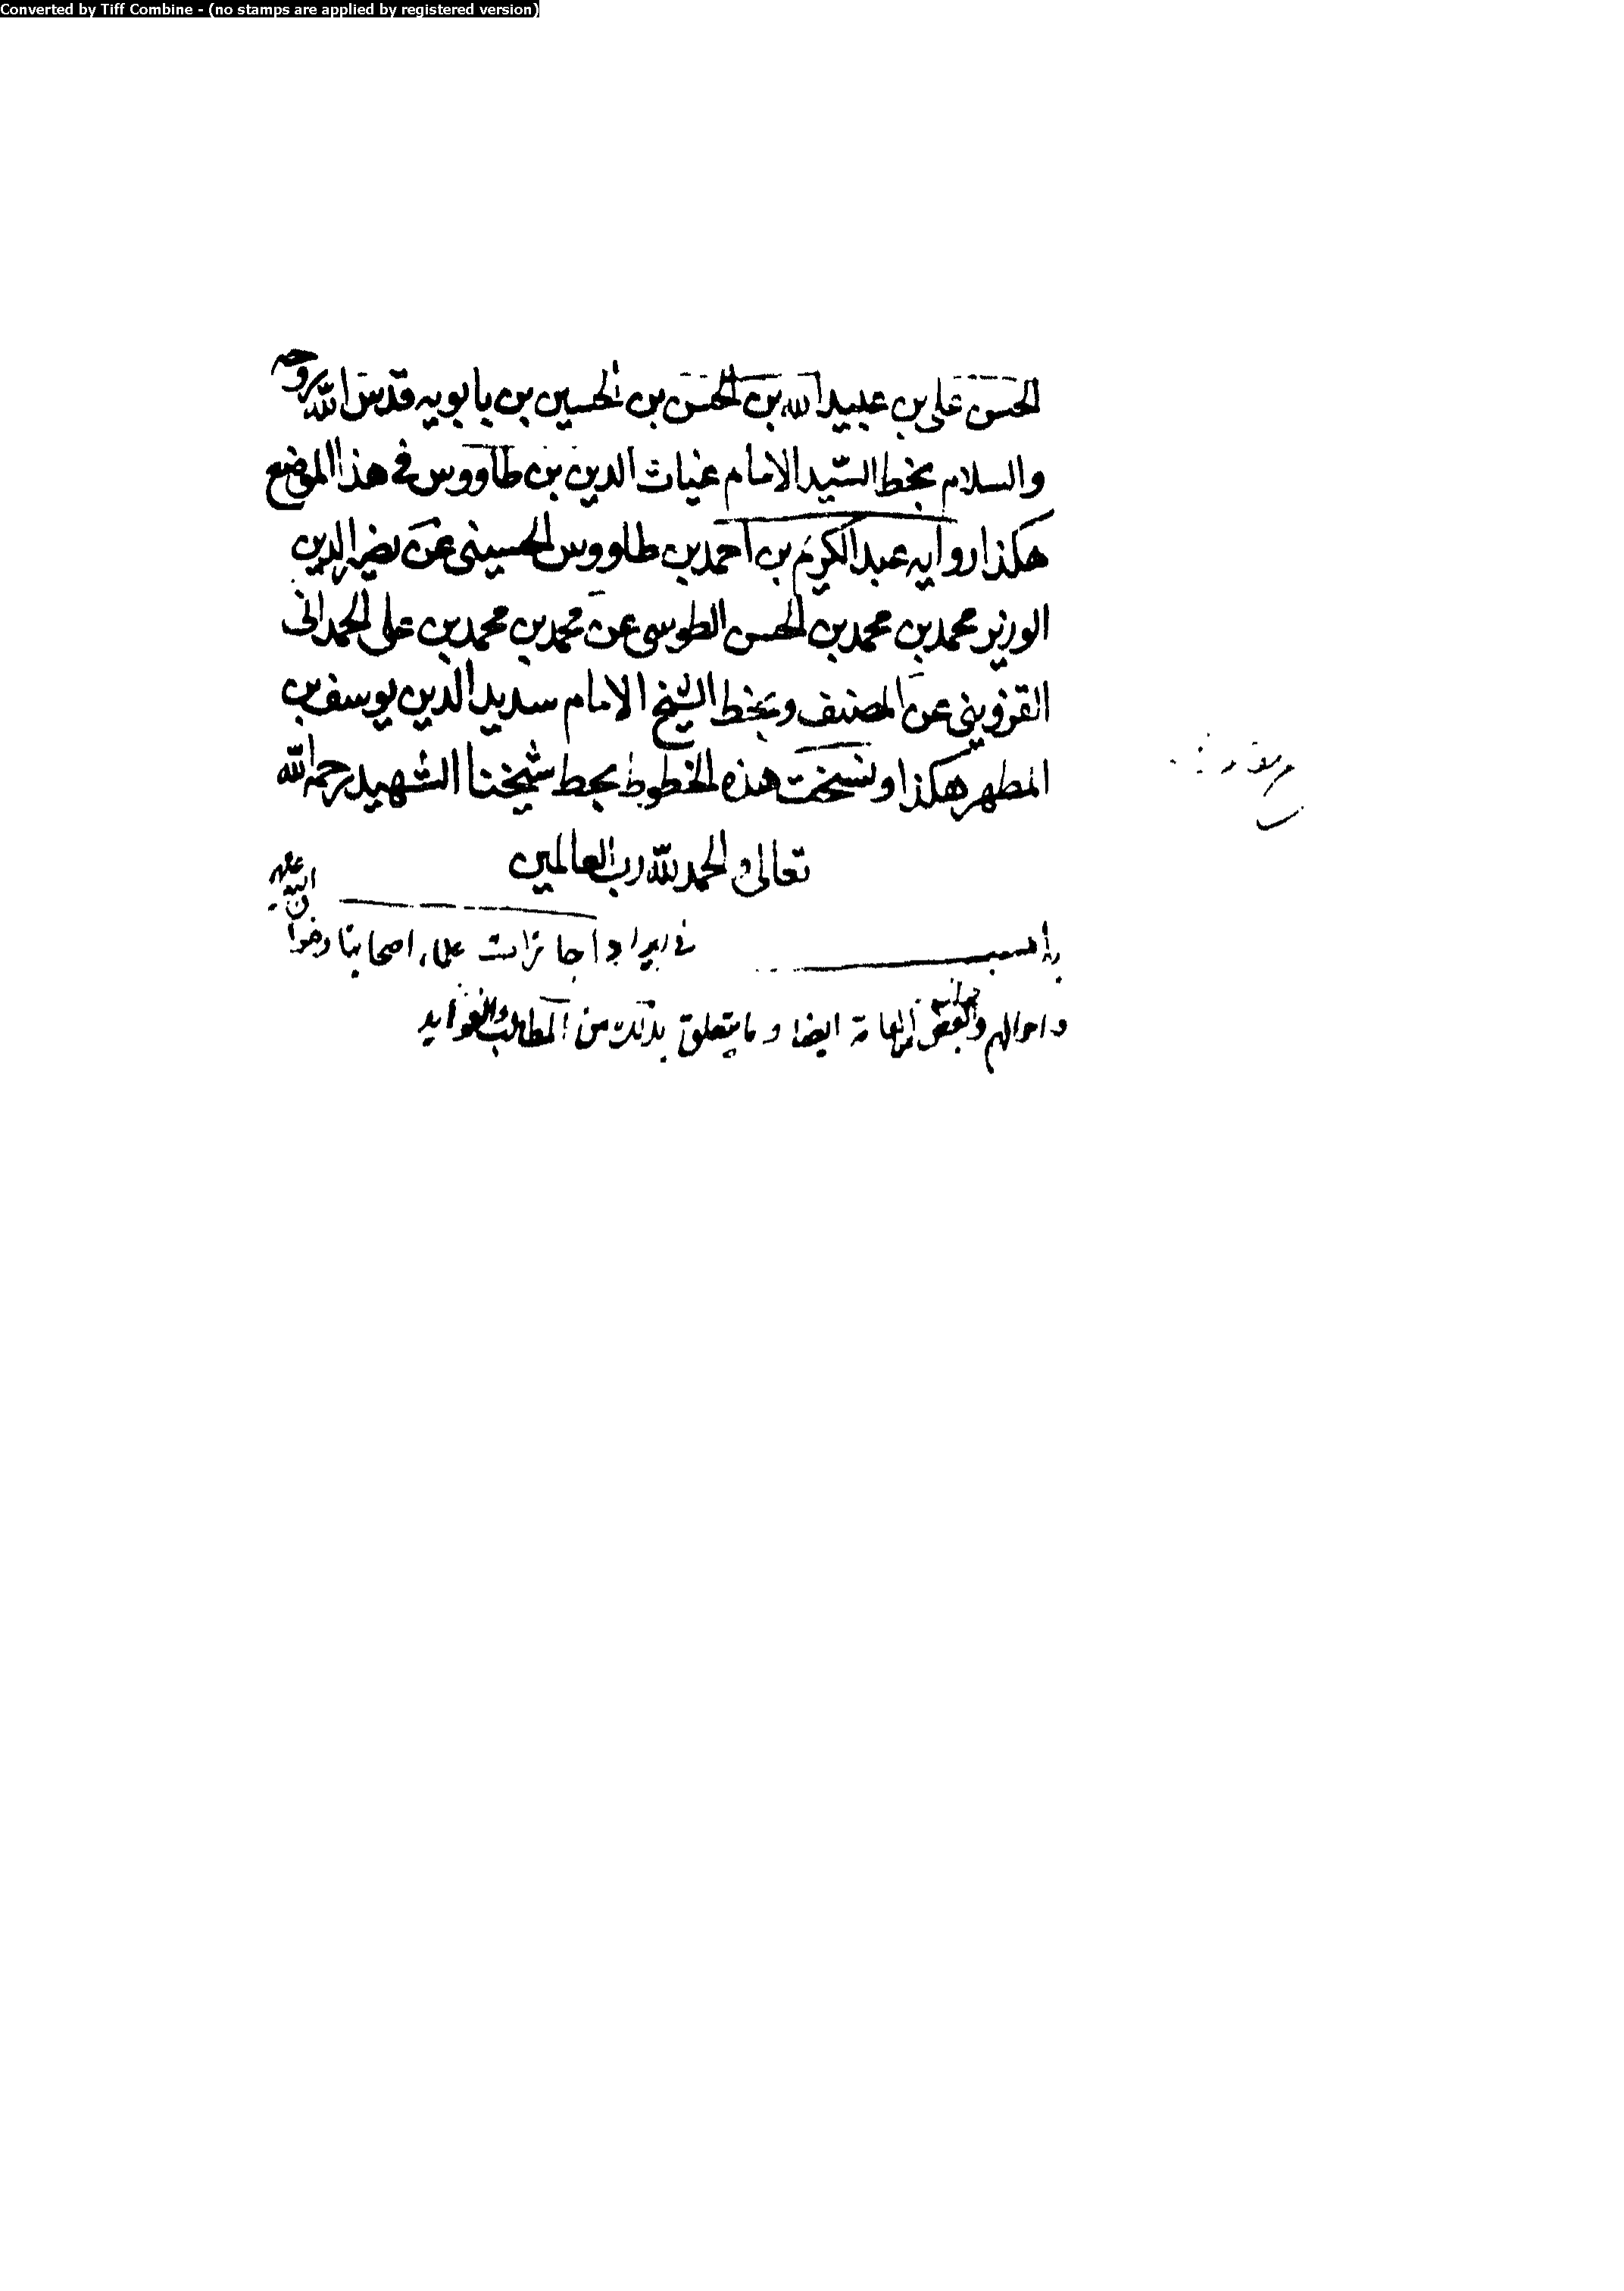 Converted by Tiff Combine - (no stamps are applied by registered version)
الحسن علی بن عبيد الله بن الحسن بن الحسين بن بابويه قدس الله روحه
والسلام بخط السيد الامام غياث الدين بن طاووس في هذا الموضع
هكذا روايه عبد الكريم بن احمد بن طاووس الحسينى عن نصير الدين
الوزير محمد بن محمد بن الحسن الطوسى عن محمد بن محمد بن على الحمدانى
القزوينى عن المصنف وبخط الشيخ الامام سديد الدين يوسف بن
المطهر هكذا ونسخت هذه الخطوط بخط شيخنا الشهيد رحمه الله
تعالى والحمد لله رب العالمين
باب في ايراد اجازات علماء اصحابنا رضوان الله عليهم
واحوالهم والبعض العامة ايضا وما يتعلق بذلك من المطالب والفوايد